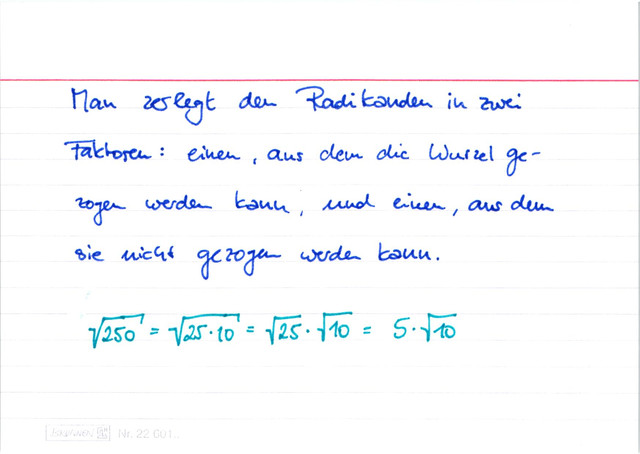 Man zerlegt den Radikanden in zwei
Faktoren: einen, aus dem die Wurzel ge-
zogen werden kann, und einen, aus dem
sie nicht gezogen werden kann.
√250 = √25·10 = √25 · √10 = 5·√10
Nr. 22 601..